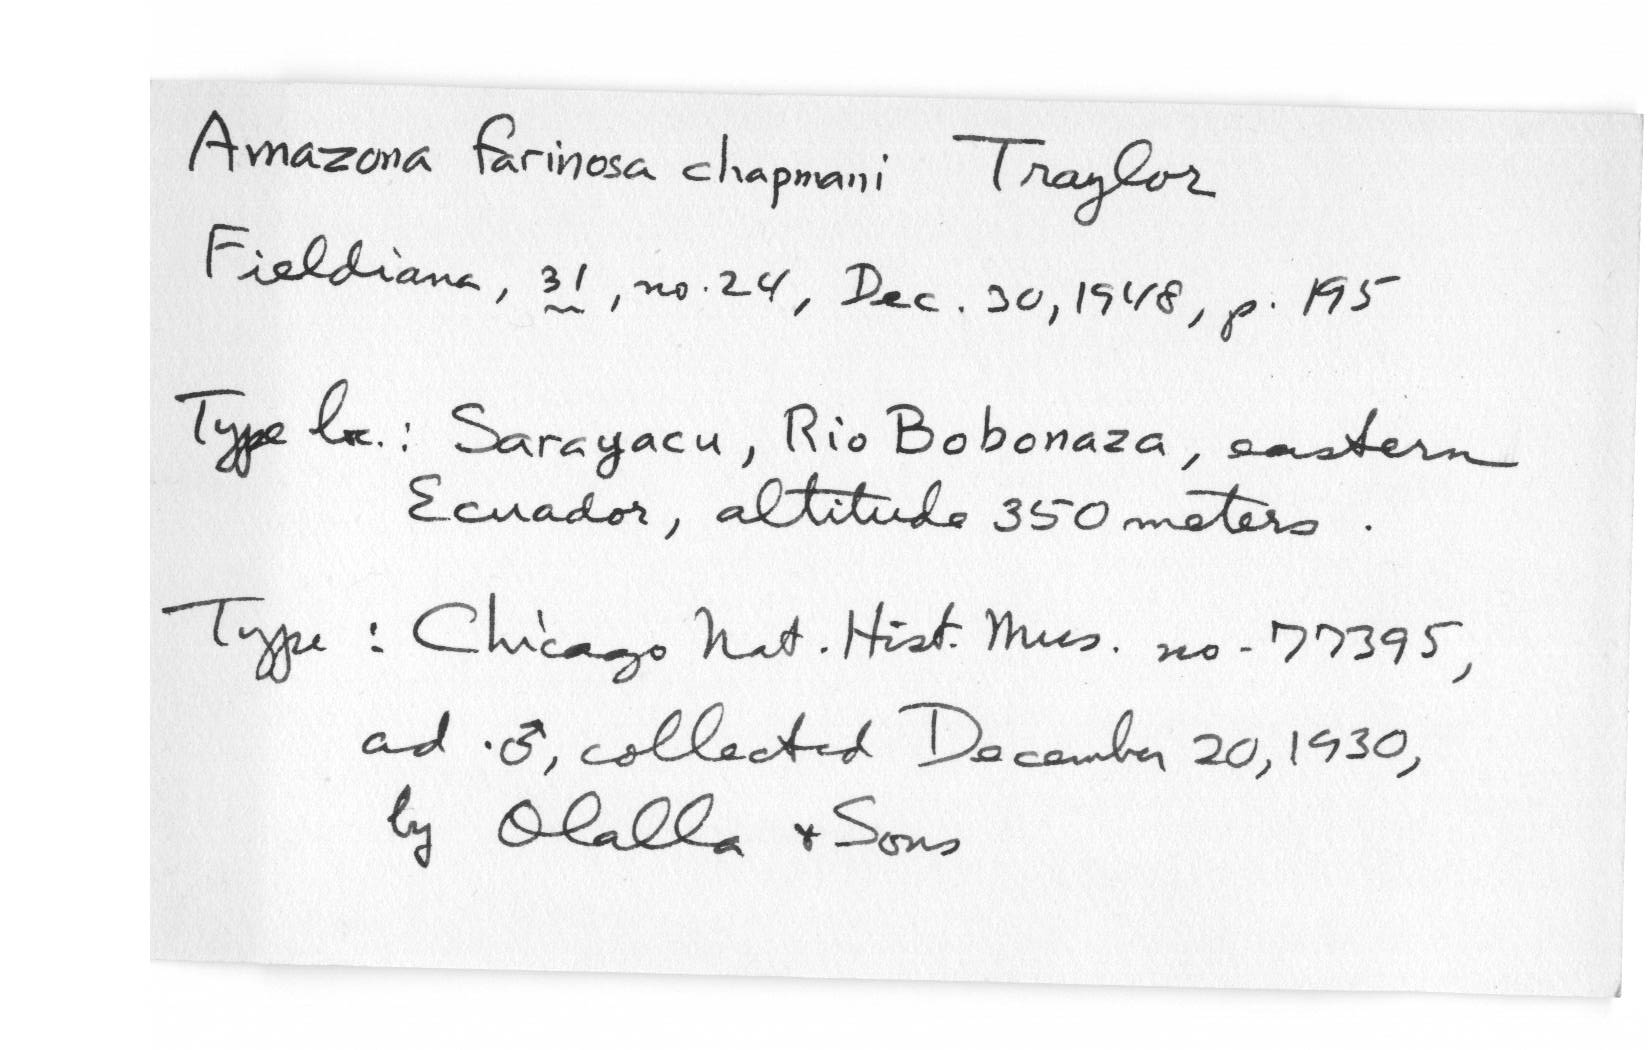 Amazona farinosa chapmani Traylor
Fieldiana, 31, no. 24, Dec. 30, 1948, p. 195
Type loc.: Sarayacu, Rio Bobonaza, eastern
Ecuador, altitude 350 meters.
Type: Chicago Nat. Hist. Mus. no. 77395,
ad. ♂, collected December 20, 1930,
by Olalla & Sons